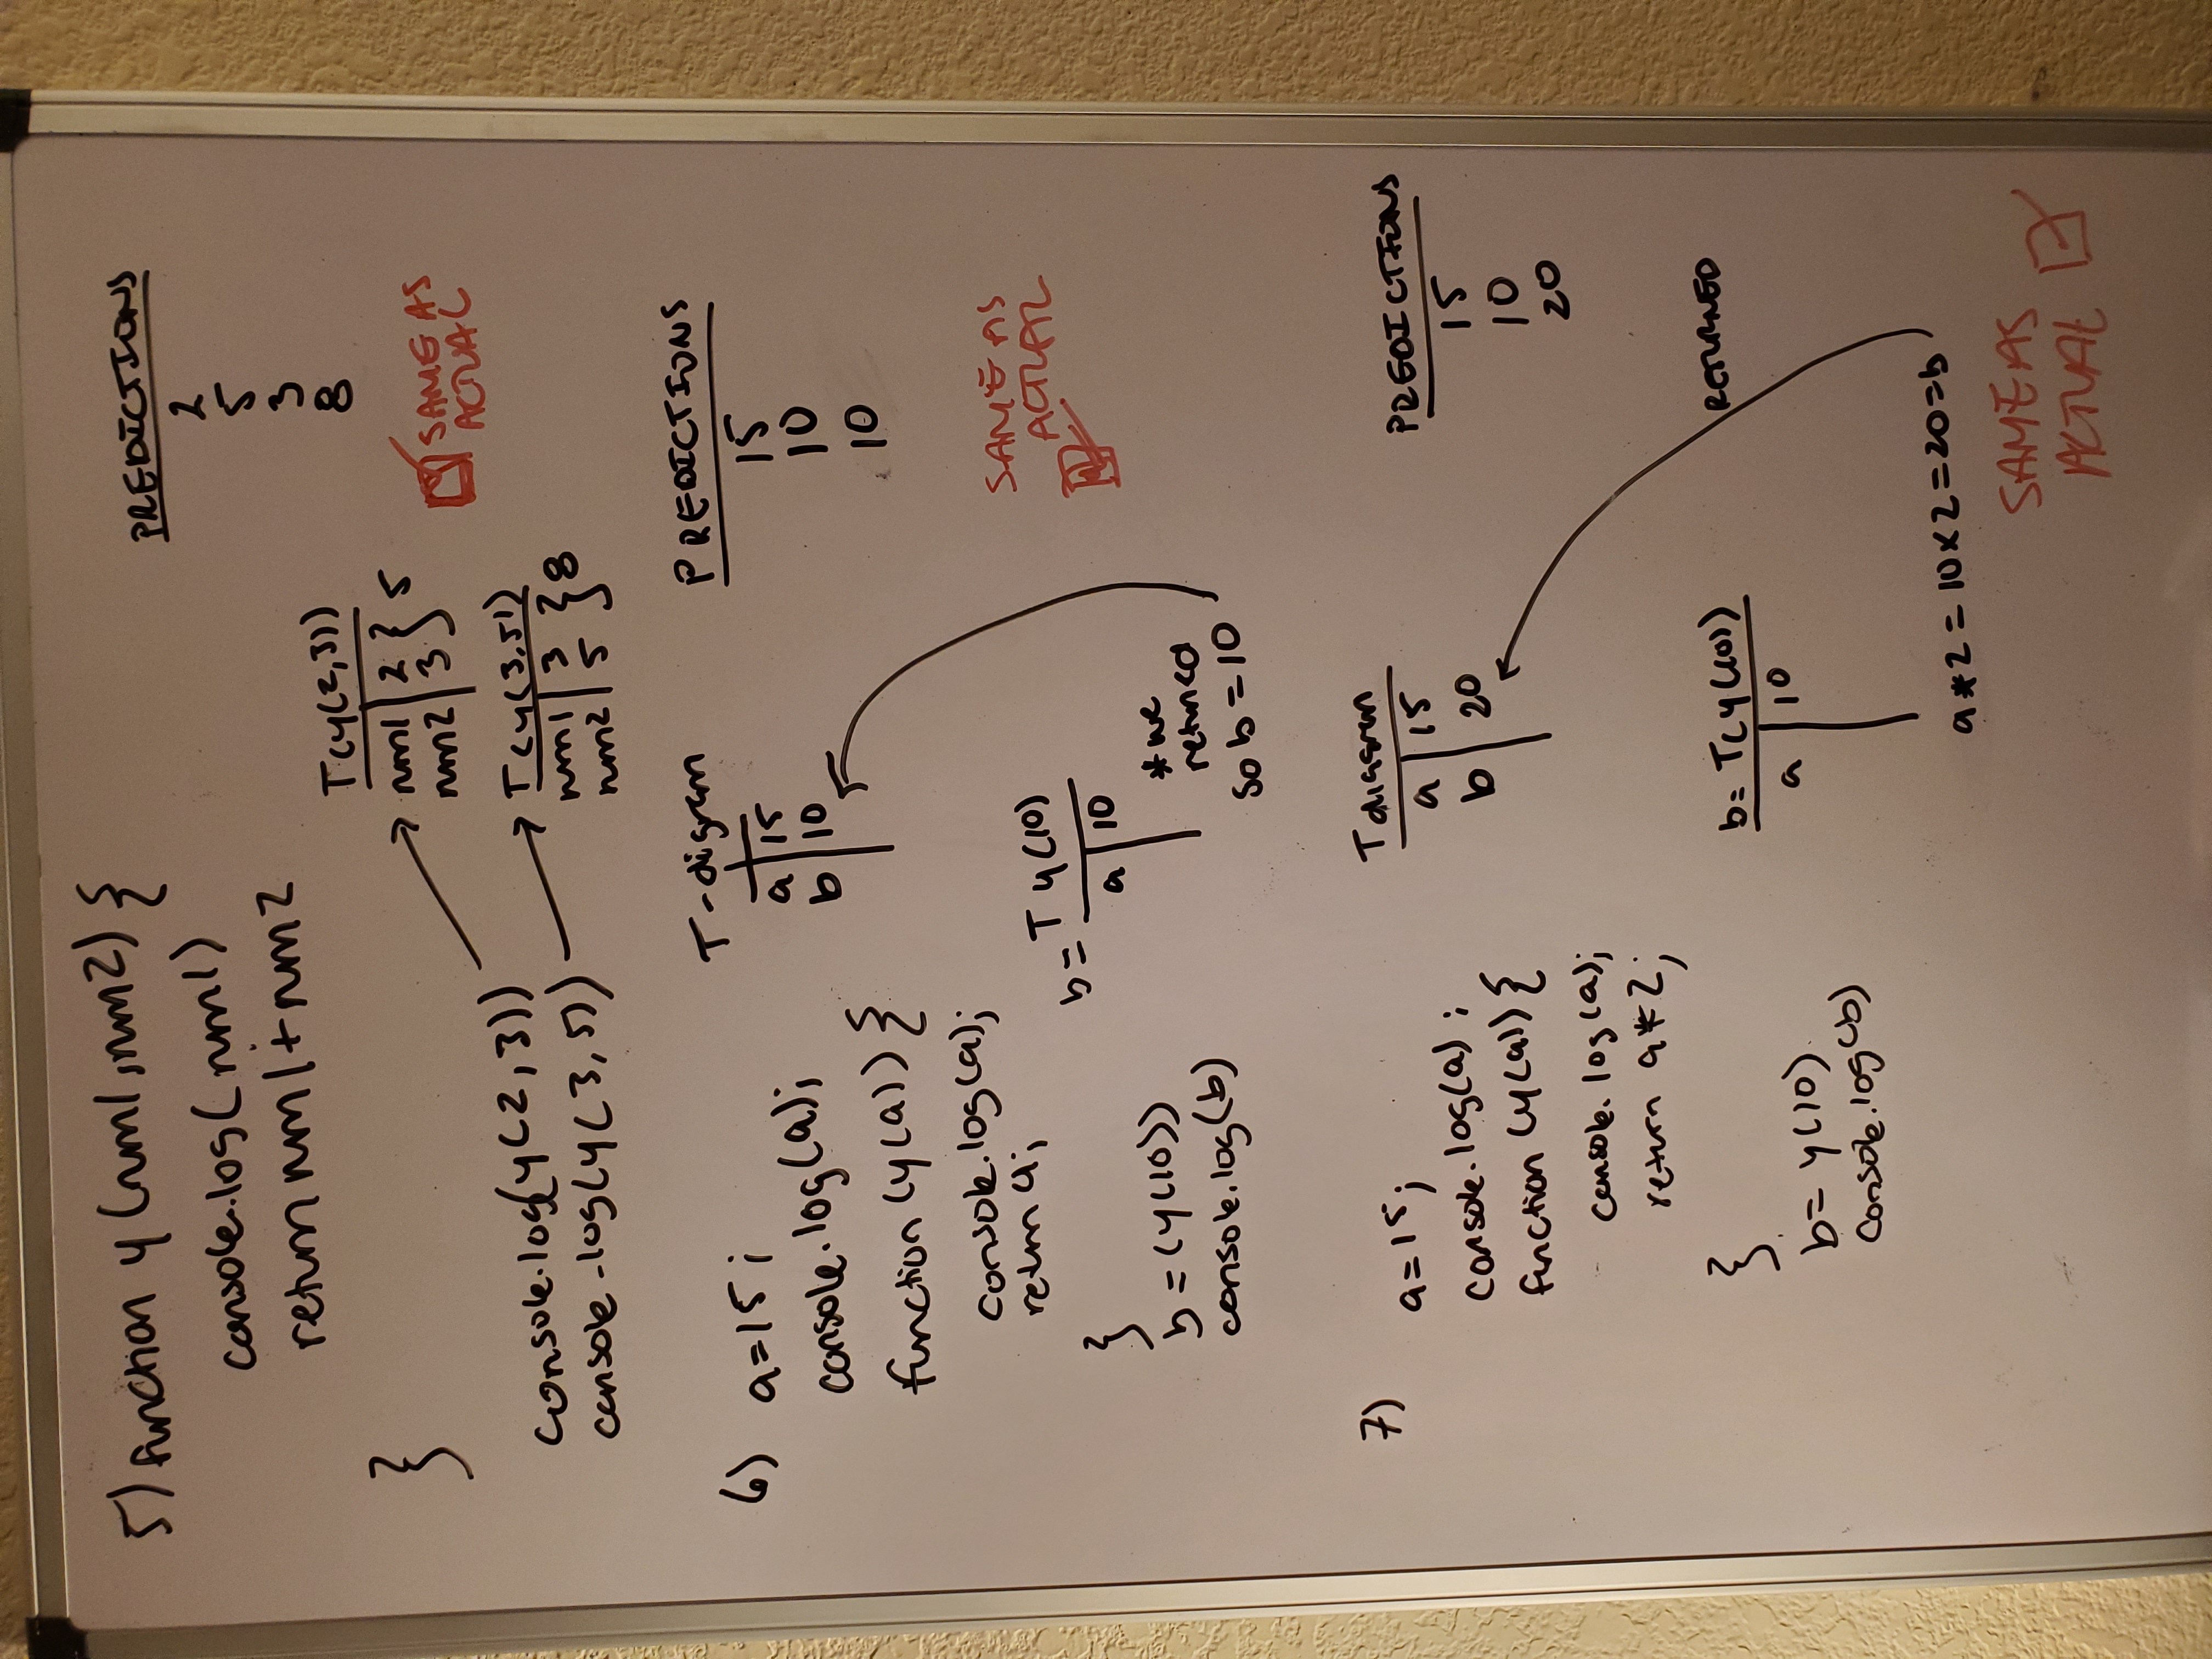 5) function y (num1, num2) {
console.log( num1)
return num1 + num2
}
console.log(y(2,3))
console.log(y(3,5))
T(y(2,3))
num1 | 2 } 5
num2 | 3
T(y(3,5))
num1 | 3 } 8
num2 | 5
PREDICTIONS
2
5
3
8
SAME AS
ACTUAL
6) a=15;
console.log(a);
function (y(a)) {
console.log(a);
return a;
}
b = (y(10))
console.log(b)
T-digram
a | 15
b | 10
b = T y(10)
a | 10
* we
returned
so b = 10
PREDICTIONS
15
10
10
SAME AS
ACTUAL
7)
a=15;
console.log(a);
function (y(a)) {
console.log(a);
return a*2;
}
b= y(10)
console.log(b)
T diagram
a | 15
b | 20
b= T(y(10))
a | 10
RETURNED
a*2 = 10x2=20=b
PREDICTIONS
15
10
20
SAME AS
ACTUAL